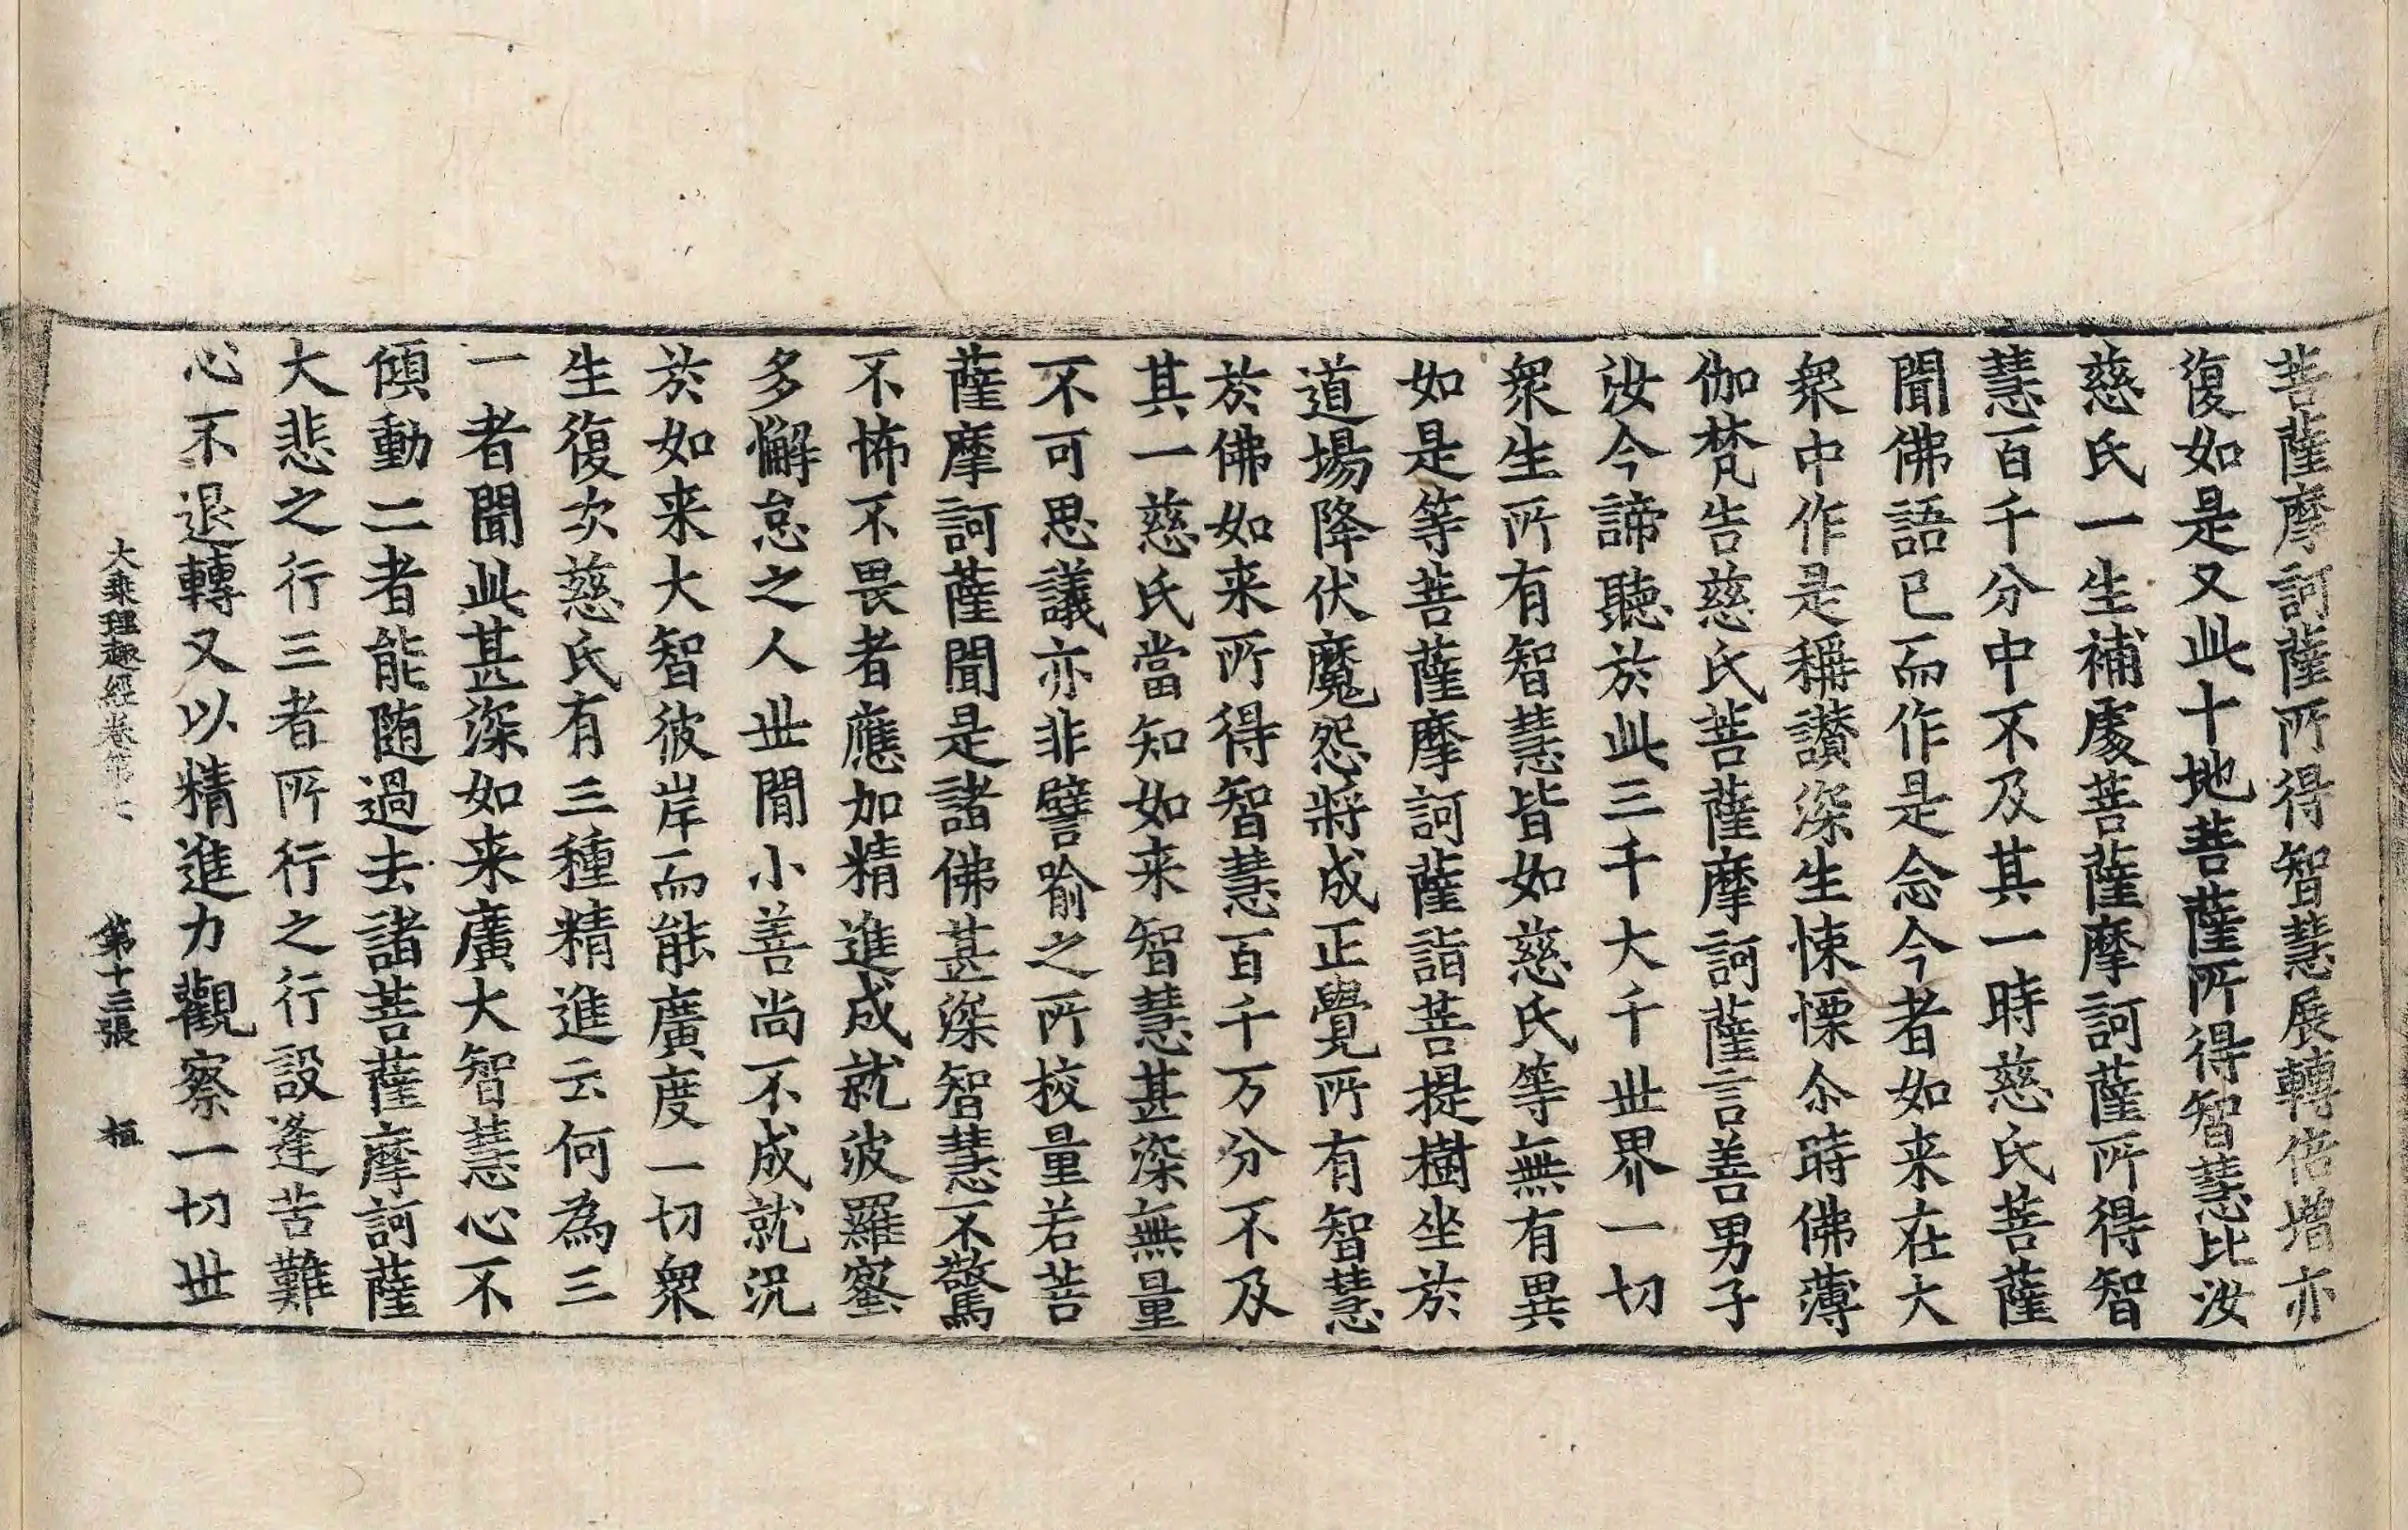 菩薩摩訶薩所得智慧展轉倍增亦
復如是又此十地菩薩所得智慧比汝
慈氏一生補處菩薩摩訶薩所得智
慧百千分中不及其一時慈氏菩薩
聞佛語已而作是念今者如来在大
衆中作是稱讃深生悚慄尒時佛薄
伽梵告慈氏菩薩摩訶薩言善男子
汝今諦聽於此三千大千世界一切
衆生所有智慧皆如慈氏等無有異
如是等菩薩摩訶薩詣菩提樹坐於
道場降伏魔怨將成正覺所有智慧
於佛如来所得智慧百千万分不及
其一慈氏當知如来智慧甚深無量
不可思議亦非譬喻之所校量若菩
薩摩訶薩聞是諸佛甚深智慧不驚
不怖不畏者應加精進成就波羅蜜
多懈怠之人世間小善尚不成就況
於如来大智彼岸而能廣度一切衆
生復次慈氏有三種精進云何為三
一者聞此甚深如来廣大智慧心不
傾動二者能随過去諸菩薩摩訶薩
大悲之行三者所行之行設逢苦難
心不退轉又以精進力觀察一切世
大乘理趣經卷第七 第十三張 桓